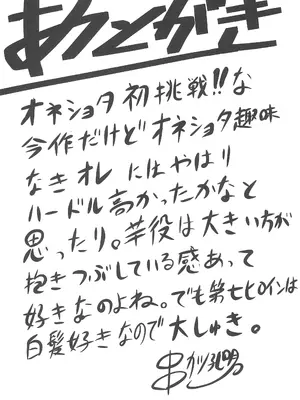 あとがき
オネショタ初挑戦!!な
今作だけどオネショタ趣味
なきオレにはやはり
ハードル高かったかなと
思ったり。竿役は大きい方が
抱きつぶしている感あって
好きなのよね。でも第七ヒロインは
白髪好きなので大しゅき。